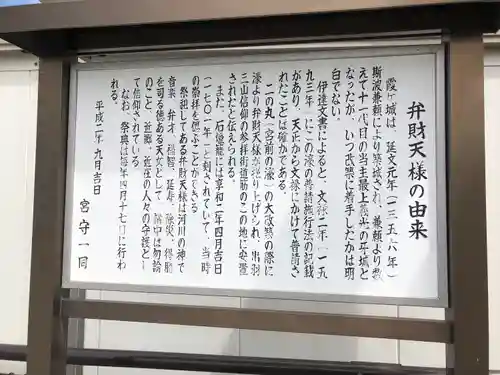 弁財天様の由来
霞ヶ城は、延文元年(一三五六年)
斯波兼頼により築城され、兼頼より数
えて十一代目の当主最上義光の平城と
なったが、いつ改築に着手したかは明
白でない。
伊達文書によると、文禄二年(一五
九三年)にこの濠の普請施行法の記載
があり、天正から文禄にかけて普請さ
れたことは確かである。
二の丸(宮前の濠)の大改築の際に
濠より弁財天様が送り上げられ、出羽
三山信仰の参拝街道筋のこの地に安置
されたと伝えられる。
また、石燈籠には享和二年四月吉日
(一七〇一年)と刻されていて、当時
の崇拝を偲ぶことができる。
祭祀してある弁財天様は河川の神で
音楽、弁才、福智、延寿、除災、得勝
を司る徳ある天女として、除中は勿論
のこと、近郷、近在の人々の守護とし
て信仰されている。
なお、祭典は毎年四月十七日に行わ
れる。
平成二年九月吉日
宮守一同